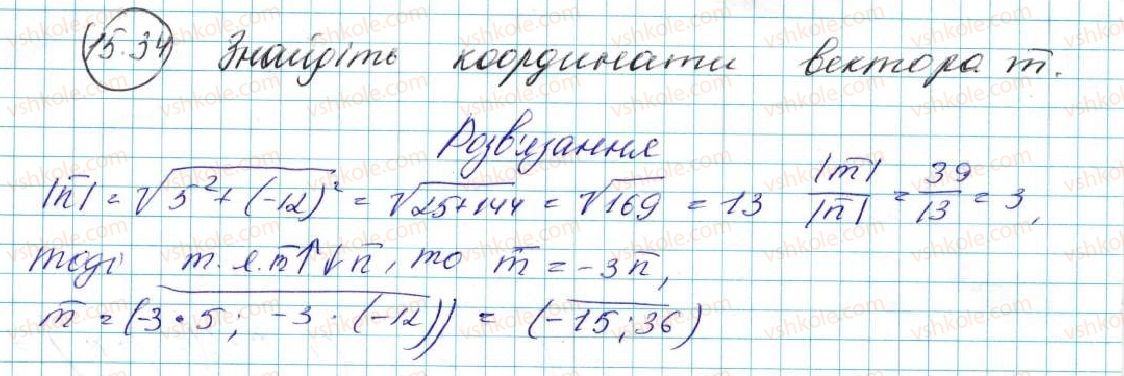 15.34 Знайдіть координати вектора m̅.
Розв'язання
|n̅| = √(5² + (-12)²) = √(25+144) = √169 = 13 |m̅|/|n̅| = 39/13 = 3,
тоді т. я. m̅↑↓n̅, то m̅ = -3n̅,
m̅ = (-3 · 5; -3 · (-12)) = (-15; 36)
vshkole.com